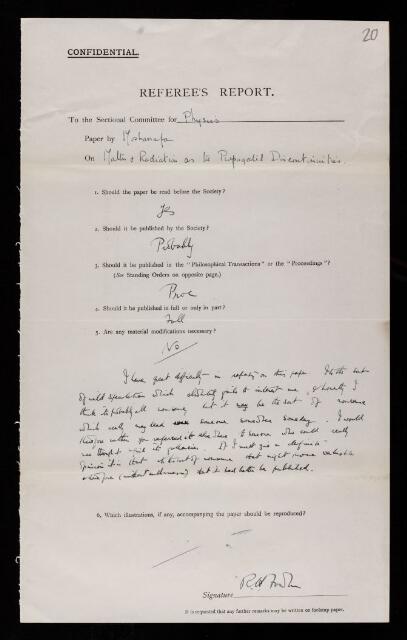 20
CONFIDENTIAL.
REFEREE'S REPORT.
To the Sectional Committee for Physics
Paper by Mosharrafa
On Matter & Radiation as the Propagated Discontinuities.
1. Should the paper be read before the Society?
Yes
2. Should it be published by the Society?
Probably
3. Should it be published in the "Philosophical Transactions" or the "Proceedings"?
(See Standing Orders on opposite page.)
Proc
4. Should it be published in full or only in part?
Full
5. Are any material modifications necessary?
No
I have great difficulty in refereeing on this paper. It is the sort
of wild speculation which absolutely fails to interest me, & honestly I
think it probably all nonsense but it may be the sort of nonsense
which really may lead someone somewhere someday. I would
therefore rather you referred it
opinion it is that
therefore (without enthusiasm) that it had better be published.
6. Which illustrations, if any, accompanying the paper should be reproduced?
Signature
It is requested that any further remarks may be written on foolscap paper.